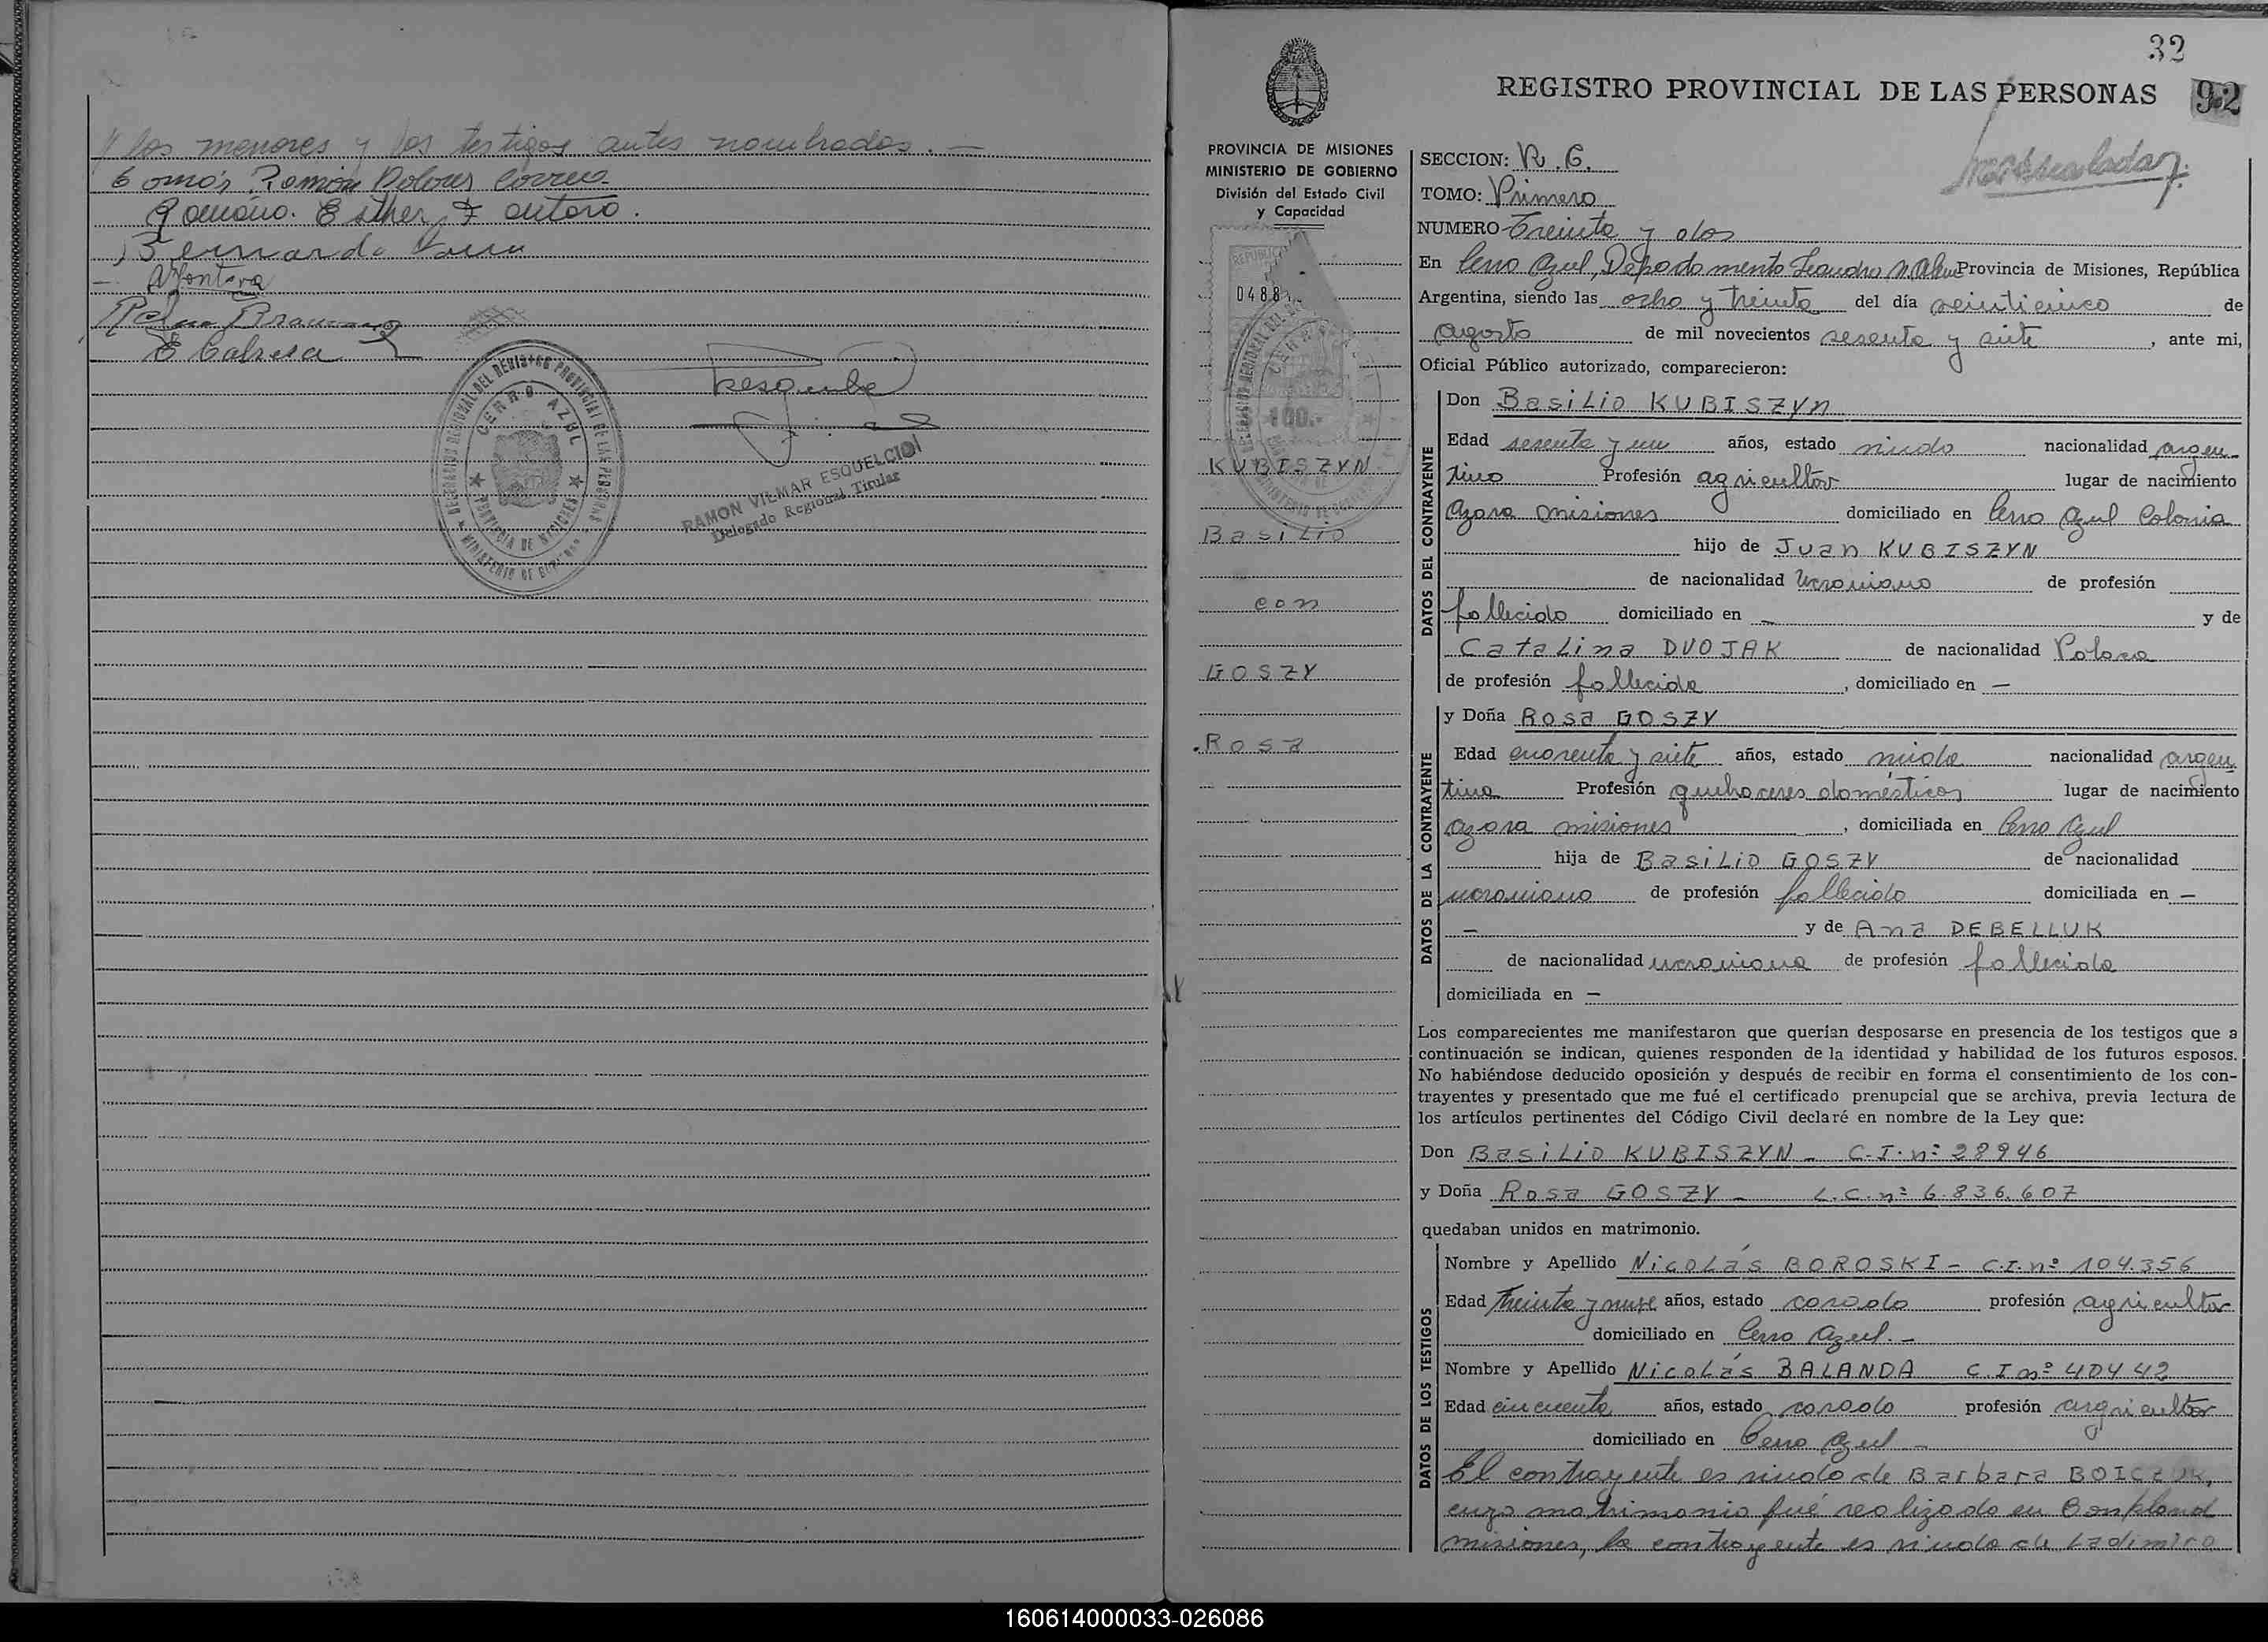 // los menores y los testigos antes nombrados. —
Tomás Ramón Dolores Correa
Romano. Esther F
Bernardo
E Cabrera
DELEGACION REGIONAL DEL REGISTRO PROVINCIAL DE LAS PERSONAS
CERRO AZUL
PROVINCIA DE MISIONES
MINISTERIO DE GOBIERNO
RAMON VILMAR ESQUELCION
Delegado Regional Titular
32
REGISTRO PROVINCIAL DE LAS PERSONAS 92
PROVINCIA DE MISIONES
MINISTERIO DE GOBIERNO
División del Estado Civil
y Capacidad
KUBISZYN
Basilio
con
GOSZY
Rosa
SECCION: R.C.
TOMO: Primero
NUMERO Treinta y dos
En Cerro Azul, Departamento Leandro N. Alem Provincia de Misiones, República
Argentina, siendo las ocho y treinta del día veinticinco de
agosto de mil novecientos sesenta y siete, ante mi,
Oficial Público autorizado, comparecieron:
DATOS DEL CONTRAYENTE
Don Basilio KUBISZYN
Edad sesenta y un años, estado viudo nacionalidad argen-
tino Profesión agricultor lugar de nacimiento
Azara Misiones domiciliado en Cerro Azul Colonia
hijo de Juan KUBISZYN
de nacionalidad Ucraniano de profesión
fallecido domiciliado en — y de
Catalina DVOJAK de nacionalidad Polaca
de profesión fallecida, domiciliado en —
DATOS DE LA CONTRAYENTE
y Doña Rosa GOSZY
Edad cuarenta y siete años, estado viuda nacionalidad argen
tina Profesión quehaceres domésticos lugar de nacimiento
Azara Misiones, domiciliada en Cerro Azul
hija de Basilio GOSZY de nacionalidad
ucraniano de profesión fallecido domiciliada en —
— y de Ana DEBELLUK
de nacionalidad ucraniana de profesión fallecida
domiciliada en —
Los comparecientes me manifestaron que querían desposarse en presencia de los testigos que a
continuación se indican, quienes responden de la identidad y habilidad de los futuros esposos.
No habiéndose deducido oposición y después de recibir en forma el consentimiento de los con-
trayentes y presentado que me fué el certificado prenupcial que se archiva, previa lectura de
los artículos pertinentes del Código Civil declaré en nombre de la Ley que:
Don Basilio KUBISZYN — C.I. nº 28946
y Doña Rosa GOSZY — L.C. nº 6.836.607
quedaban unidos en matrimonio.
DATOS DE LOS TESTIGOS
Nombre y Apellido Nicolás BOROSKI — C.I. nº 104.356
Edad treinta y nueve años, estado casado profesión agricultor
domiciliado en Cerro Azul. —
Nombre y Apellido Nicolás BALANDA C.I nº 40442
Edad cincuenta años, estado casado profesión agricultor
domiciliado en Cerro Azul —
El contrayente es viudo de Barbara BOICZUK,
cuyo matrimonio fué realizado en Bonpland
misiones, la contrayente es viuda de Ladimiro
160614000033-026086